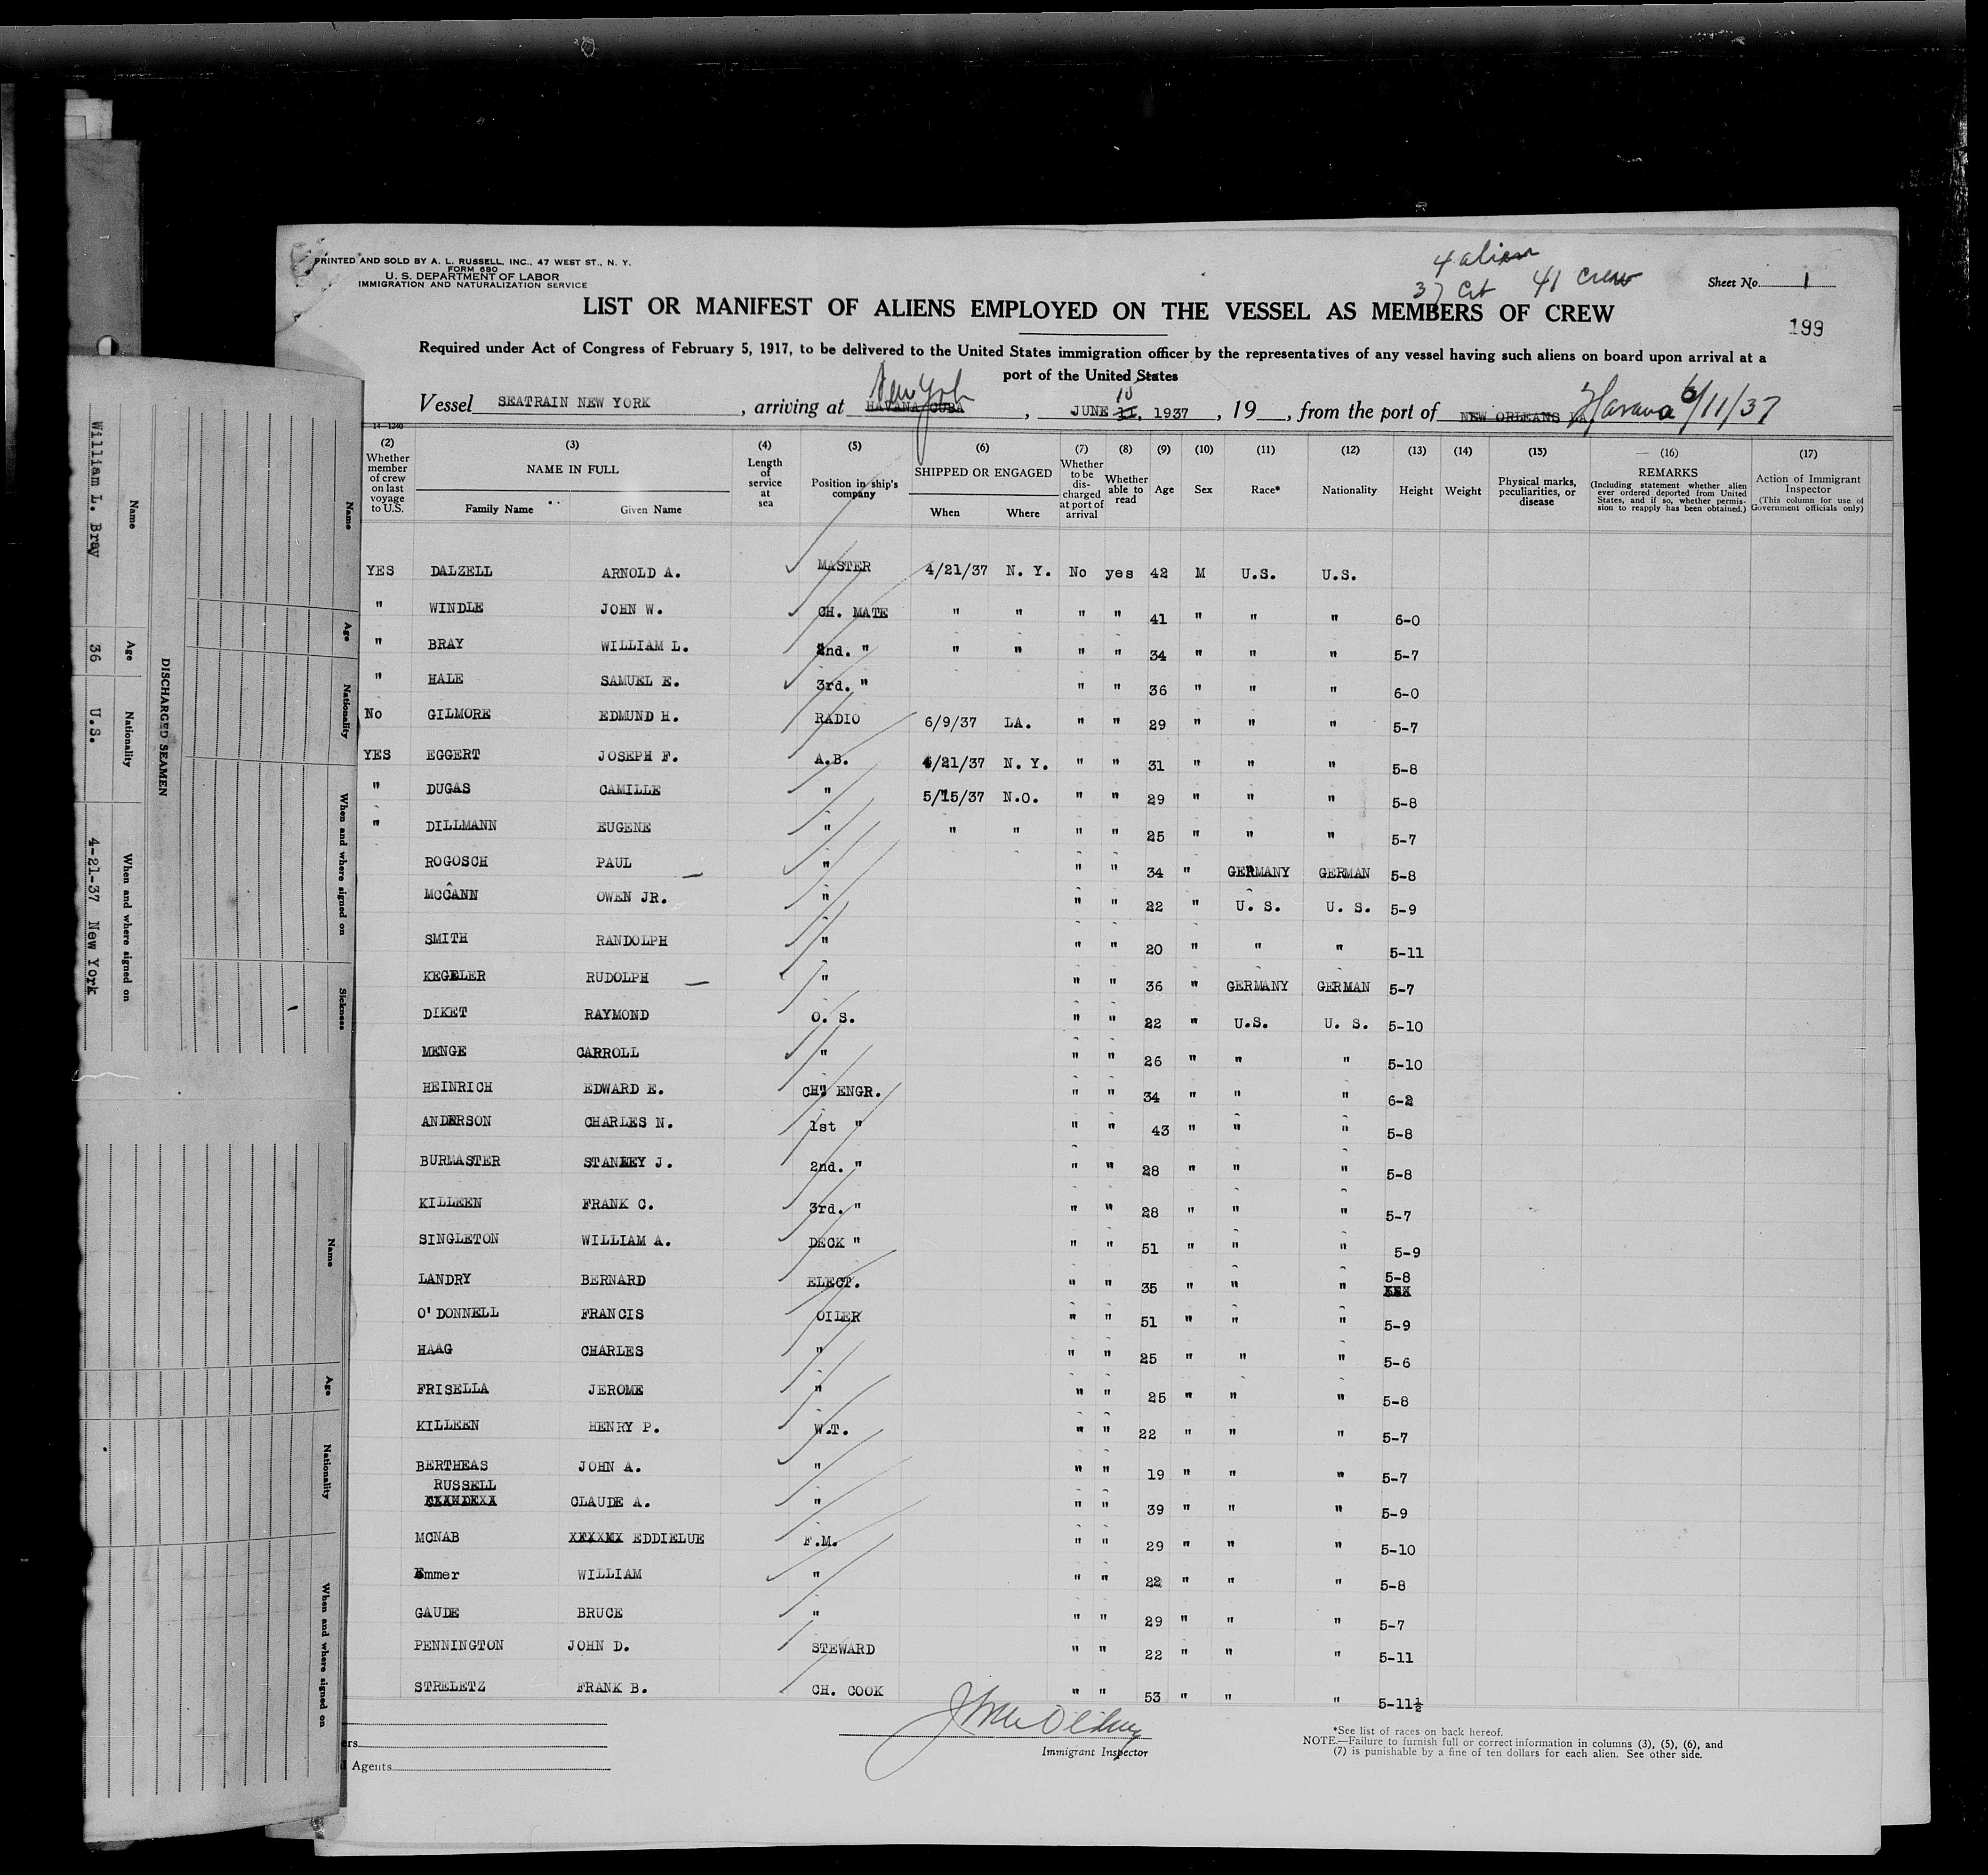 PRINTED AND SOLD BY A. L. RUSSELL, INC., 47 WEST ST., N. Y.
FORM 680
U. S. DEPARTMENT OF LABOR
IMMIGRATION AND NATURALIZATION SERVICE
4 alien
37 Cit 41 crew
Sheet No. 1
LIST OR MANIFEST OF ALIENS EMPLOYED ON THE VESSEL AS MEMBERS OF CREW
199
Required under Act of Congress of February 5, 1917, to be delivered to the United States immigration officer by the representatives of any vessel having such aliens on board upon arrival at a
port of the United States
New York
Vessel SEATRAIN NEW YORK, arriving at HAVANA CUBA, JUNE 11, 1937, 19, from the port of NEW ORLEANS LA Havana 6/11/37
14-1240
(2) (3) (4) (5) (6) (7) (8) (9) (10) (11) (12) (13) (14) (15) (16) (17)
Whether member of crew on last voyage to U.S. NAME IN FULL Family Name Given Name Length of service at sea Position in ship's company SHIPPED OR ENGAGED When Where Whether to be discharged at port of arrival Whether able to read Age Sex Race* Nationality Height Weight Physical marks, peculiarities, or disease REMARKS (Including statement whether alien ever ordered deported from United States, and if so, whether permission to reapply has been obtained.) Action of Immigrant Inspector (This column for use of Government officials only)
YES DALZELL ARNOLD A. MASTER 4/21/37 N. Y. No yes 42 M U.S. U.S.
" WINDLE JOHN W. CH. MATE " " " " 41 " " " 6-0
" BRAY WILLIAM L. 2nd. " " " " " 34 " " " 5-7
" HALE SAMUEL E. 3rd. " " " 36 " " " 6-0
No GILMORE EDMUND H. RADIO 6/9/37 LA. " " 29 " " " 5-7
YES EGGERT JOSEPH F. A.B. 4/21/37 N. Y. " " 31 " " " 5-8
" DUGAS CAMILLE " 5/15/37 N.O. " " 29 " " " 5-8
" DILLMANN EUGENE " " " " " 25 " " " 5-7
ROGOSCH PAUL " " " 34 " GERMANY GERMAN 5-8
MCCANN OWEN JR. " " " 22 " U. S. U. S. 5-9
SMITH RANDOLPH " " " 20 " " " 5-11
KEGELER RUDOLPH " " " 36 " GERMANY GERMAN 5-7
DIKET RAYMOND O. S. " " 22 " U.S. U. S. 5-10
MENGE CARROLL " " " 26 " " " 5-10
HEINRICH EDWARD E. CH. ENGR. " " 34 " " " 6-2
ANDERSON CHARLES N. 1st " " " 43 " " " 5-8
BURMASTER STANLEY J. 2nd. " " " 28 " " " 5-8
KILLEEN FRANK C. 3rd. " " " 28 " " " 5-7
SINGLETON WILLIAM A. DECK " " " 51 " " " 5-9
LANDRY BERNARD ELECT. " " 35 " " " 5-8
O'DONNELL FRANCIS OILER " " 51 " " " 5-9
HAAG CHARLES " " " 25 " " " 5-6
FRISELLA JEROME " " " 25 " " " 5-8
KILLEEN HENRY P. W.T. " " 22 " " " 5-7
BERTHEAS JOHN A. " " " 19 " " " 5-7
RUSSELL CLAUDE A. " " " 39 " " " 5-9
MCNAB EDDIELUE F.M. " " 29 " " " 5-10
Emmer WILLIAM " " " 22 " " " 5-8
GAUDE BRUCE " " " 29 " " " 5-7
PENNINGTON JOHN D. STEWARD " " 22 " " " 5-11
STRELETZ FRANK B. CH. COOK " " 53 " " " 5-11½
Immigrant Inspector
ers
Agents
*See list of races on back hereof.
NOTE.—Failure to furnish full or correct information in columns (3), (5), (6), and
(7) is punishable by a fine of ten dollars for each alien. See other side.
DISCHARGED SEAMEN
Name Age Nationality When and where signed on
William L. Bray 36 U.S. 4-21-37 New York
Name Age Nationality When and where signed on Sickness
Name Age Nationality When and where signed on